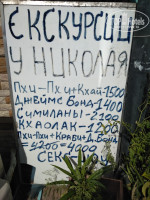 ЕКСКУРСИИ
У НИКОЛАЯ
Пхи-Пхи+Кхай-1500
Джеймс Бонд-1400
Симиланы-2100
Кхаолак-1200
Пхи-Пхи+Краби+Д.Бонд
=4200=4000
СЕКС